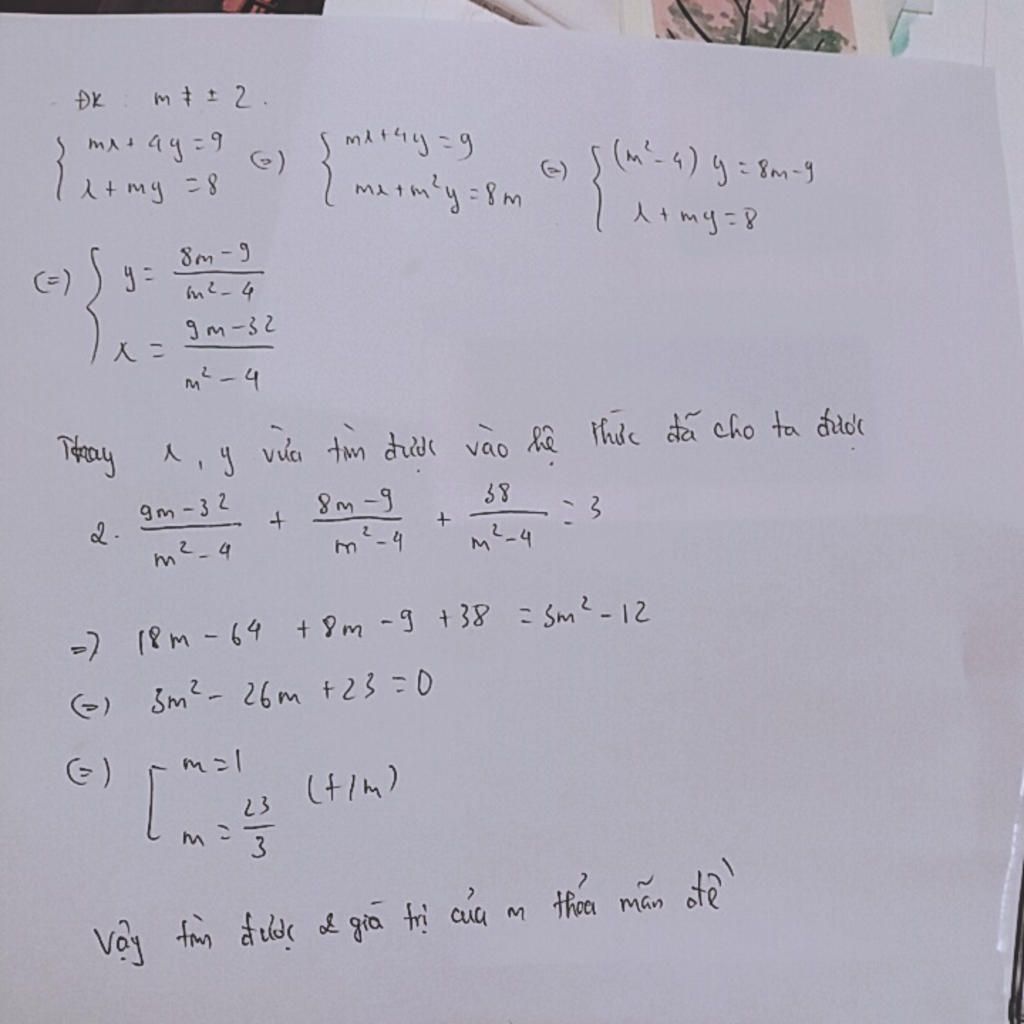 ĐK : m ≠ ± 2.
{ mx + 4y = 9 (=) { mx + 4y = 9 (=) { (m² - 4) y = 8m - 9
{ x + my = 8 { mx + m²y = 8m { x + my = 8
(=) { y = (8m - 9)/(m² - 4)
{ x = (9m - 32)/(m² - 4)
Thay x, y vừa tìm được vào hệ thức đã cho ta được
2. (9m - 32)/(m² - 4) + (8m - 9)/(m² - 4) + 38/(m² - 4) = 3
=) 18m - 64 + 8m - 9 + 38 = 3m² - 12
(=) 3m² - 26m + 23 = 0
(=) [ m = 1
[ m = 23/3 (t/m)
Vậy tìm được 2 giá trị của m thỏa mãn đề